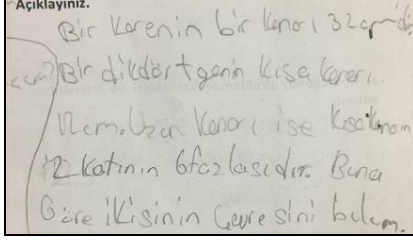 Açıklayınız.
Bir Karenin bir kenarı 32 cm'dir.
Bir dikdörtgenin kısa kenarı
cm. Uzun kenarı ise kısa kenarın
2 katının 6 fazlasıdır. Buna
Göre ikisinin çevresini bulun.